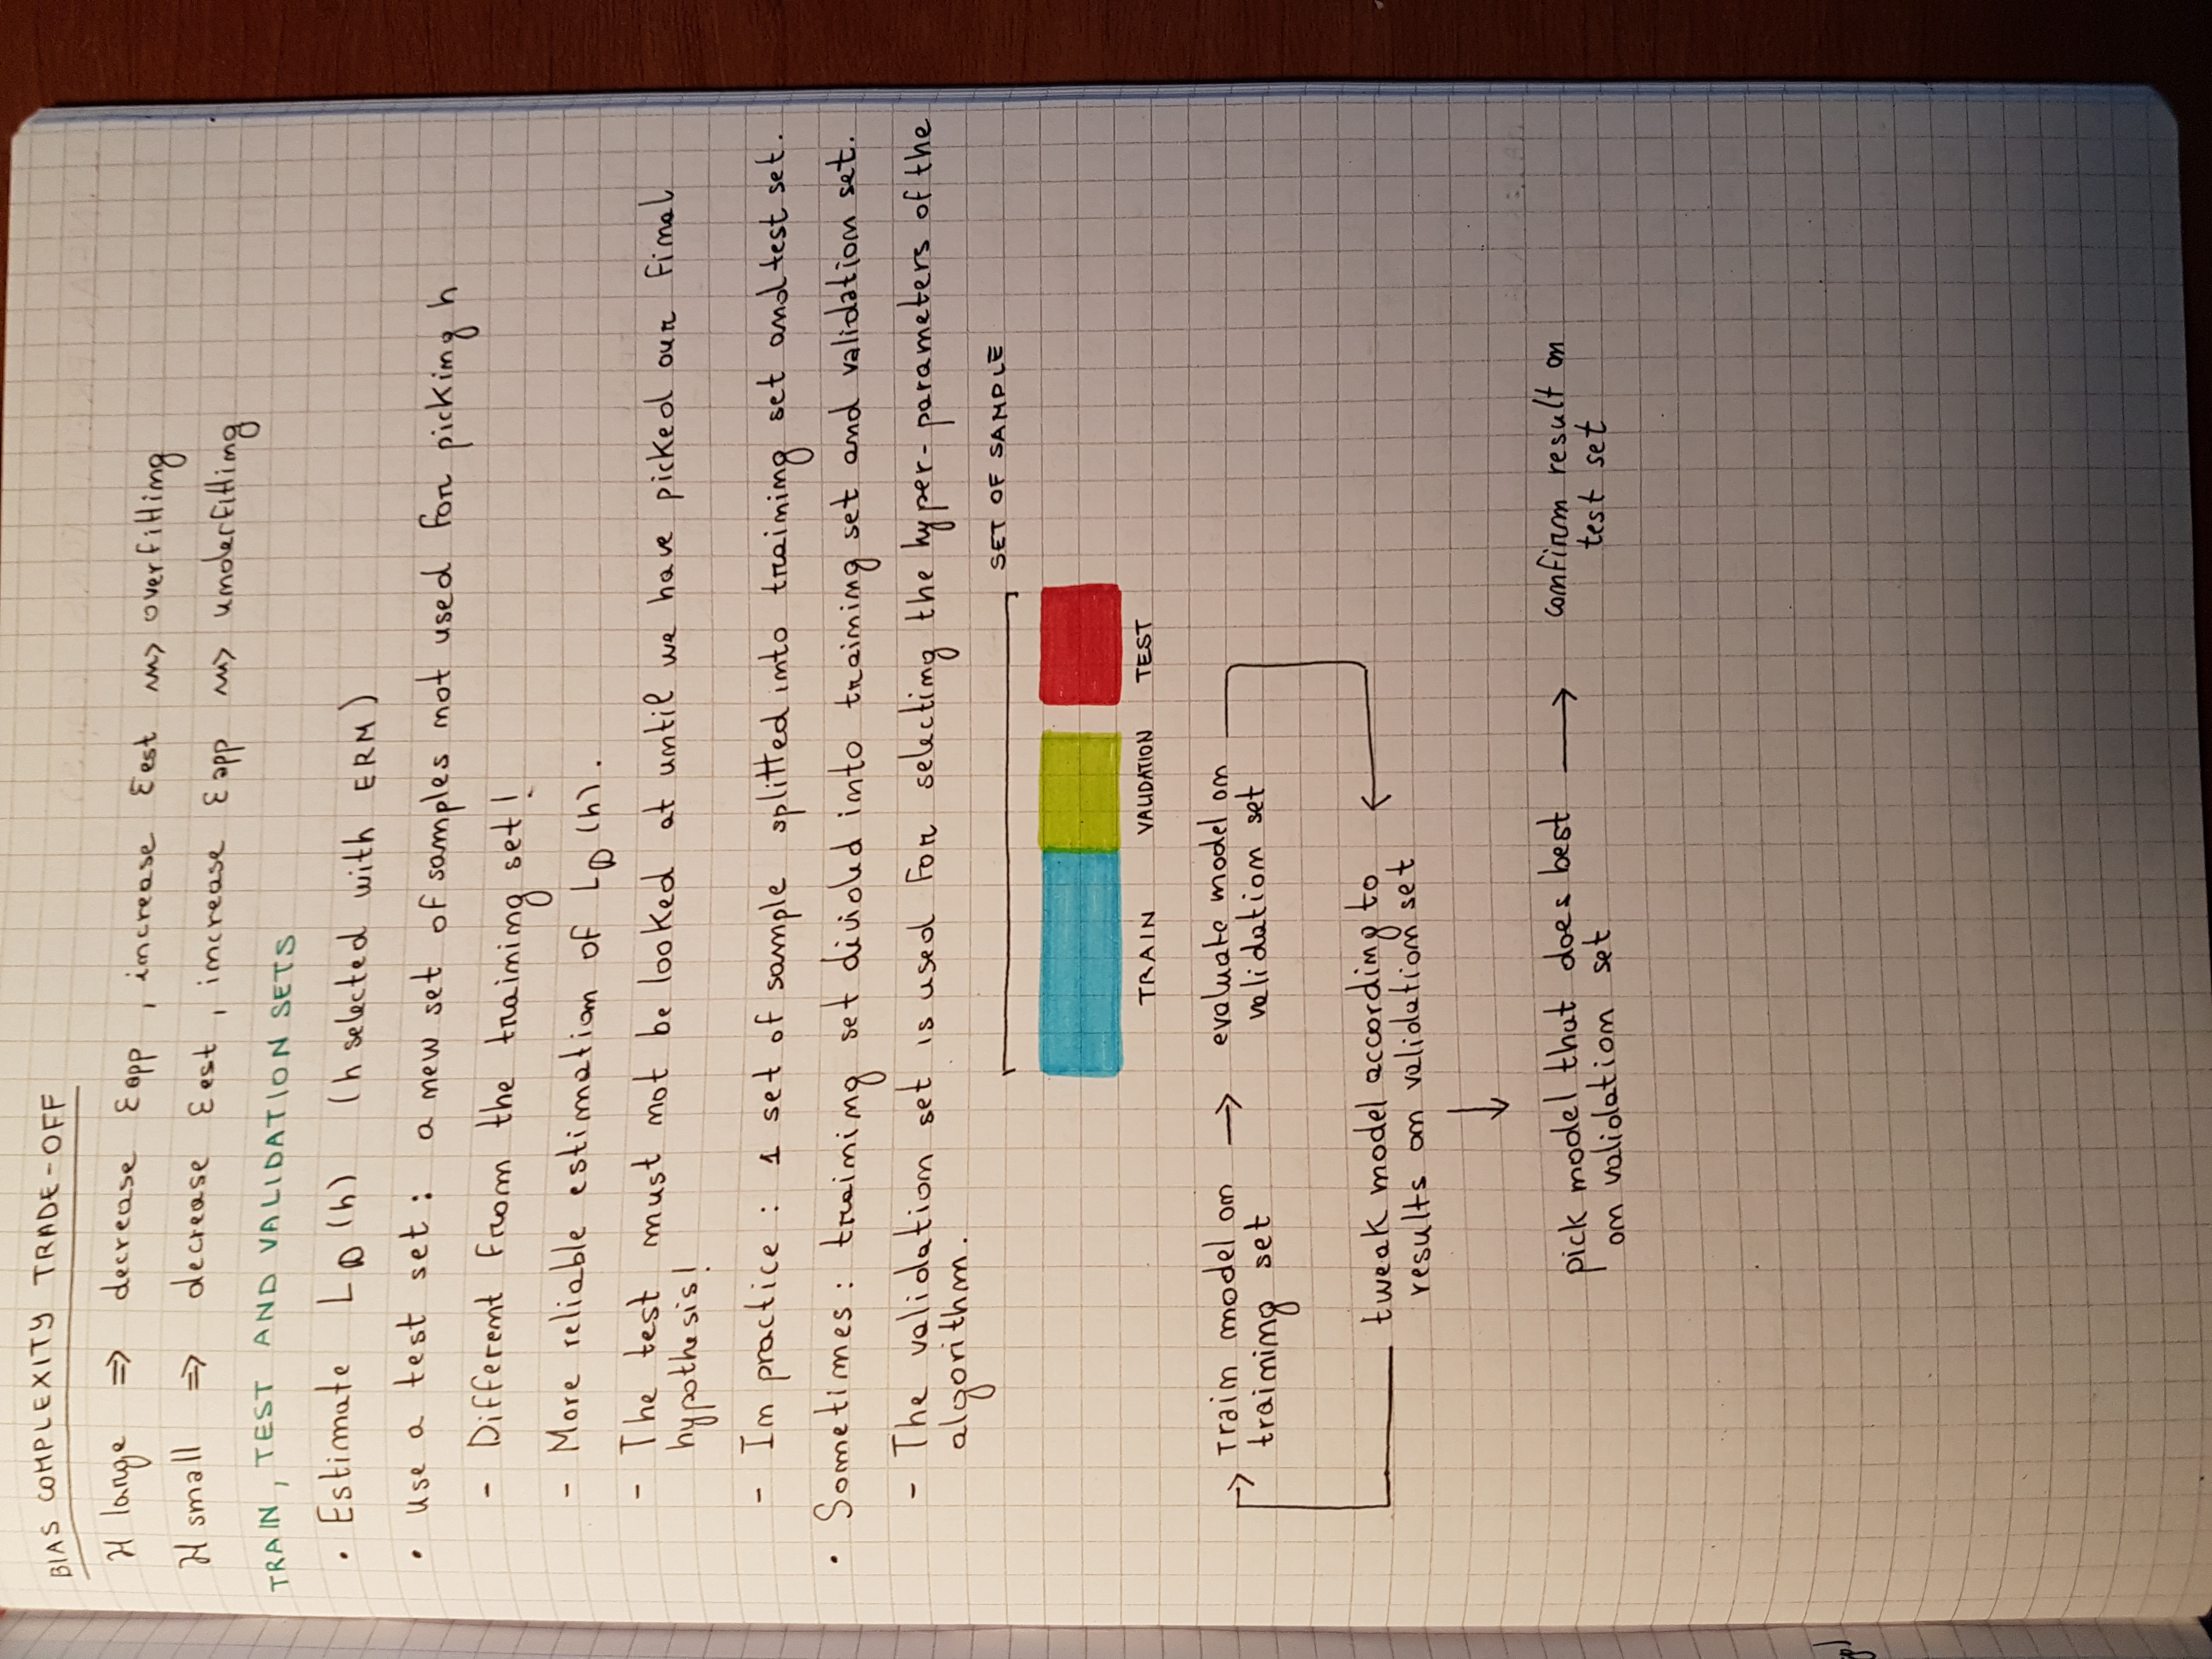 BIAS COMPLEXITY TRADE-OFF
H large => decrease εapp, increase εest ⇝ overfitting
H small => decrease εest, increase εapp ⇝ underfitting
TRAIN, TEST AND VALIDATION SETS
• Estimate L_D(h) (h selected with ERM)
• Use a test set: a new set of samples not used for picking h
- Different from the training set!
- More reliable estimation of L_D(h).
- The test must not be looked at until we have picked our final
hypothesis!
- In practice: 1 set of sample splitted into training set and test set.
• Sometimes: training set divided into training set and validation set.
- The validation set is used for selecting the hyper-parameters of the
algorithm.
SET OF SAMPLE
TRAIN VALIDATION TEST
Train model on → evaluate model on
training set validation set
tweak model according to
results on validation set
pick model that does best → confirm result on
on validation set test set